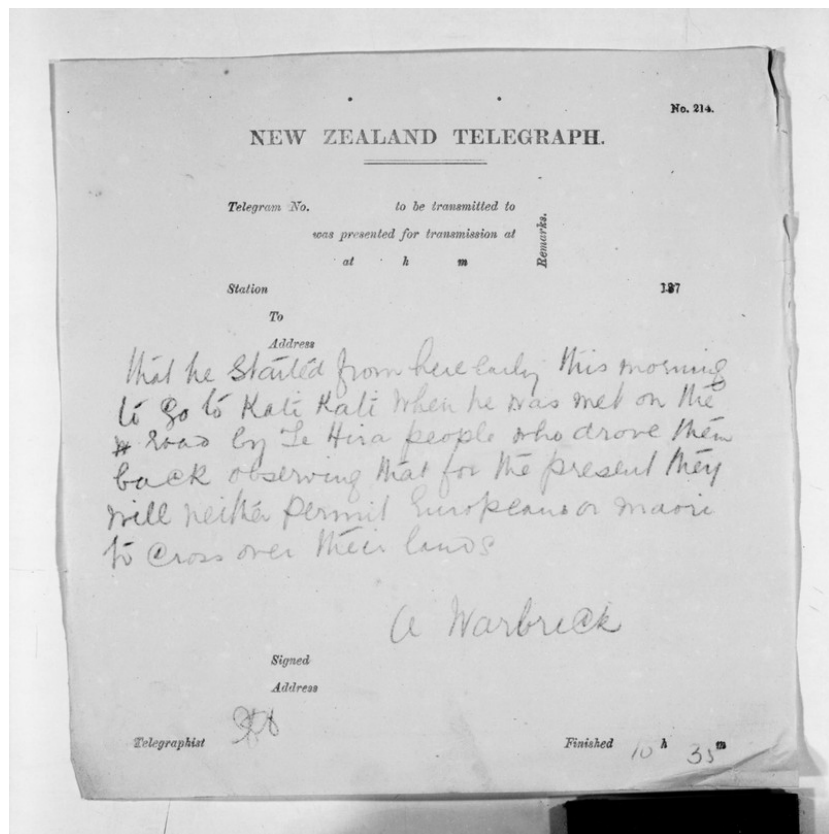 No. 214.
NEW ZEALAND TELEGRAPH.
Telegram No. to be transmitted to
was presented for transmission at
at h m
Remarks.
Station 187
To
Address
that he started from here early this morning
to go to Kati Kati when he was met on the
road by Te Hira people who drove them
back observing that for the present they
will neither permit Europeans or maori
to cross over their lands
A Warbrick
Signed
Address
Telegraphist
Finished 10 h 35 m